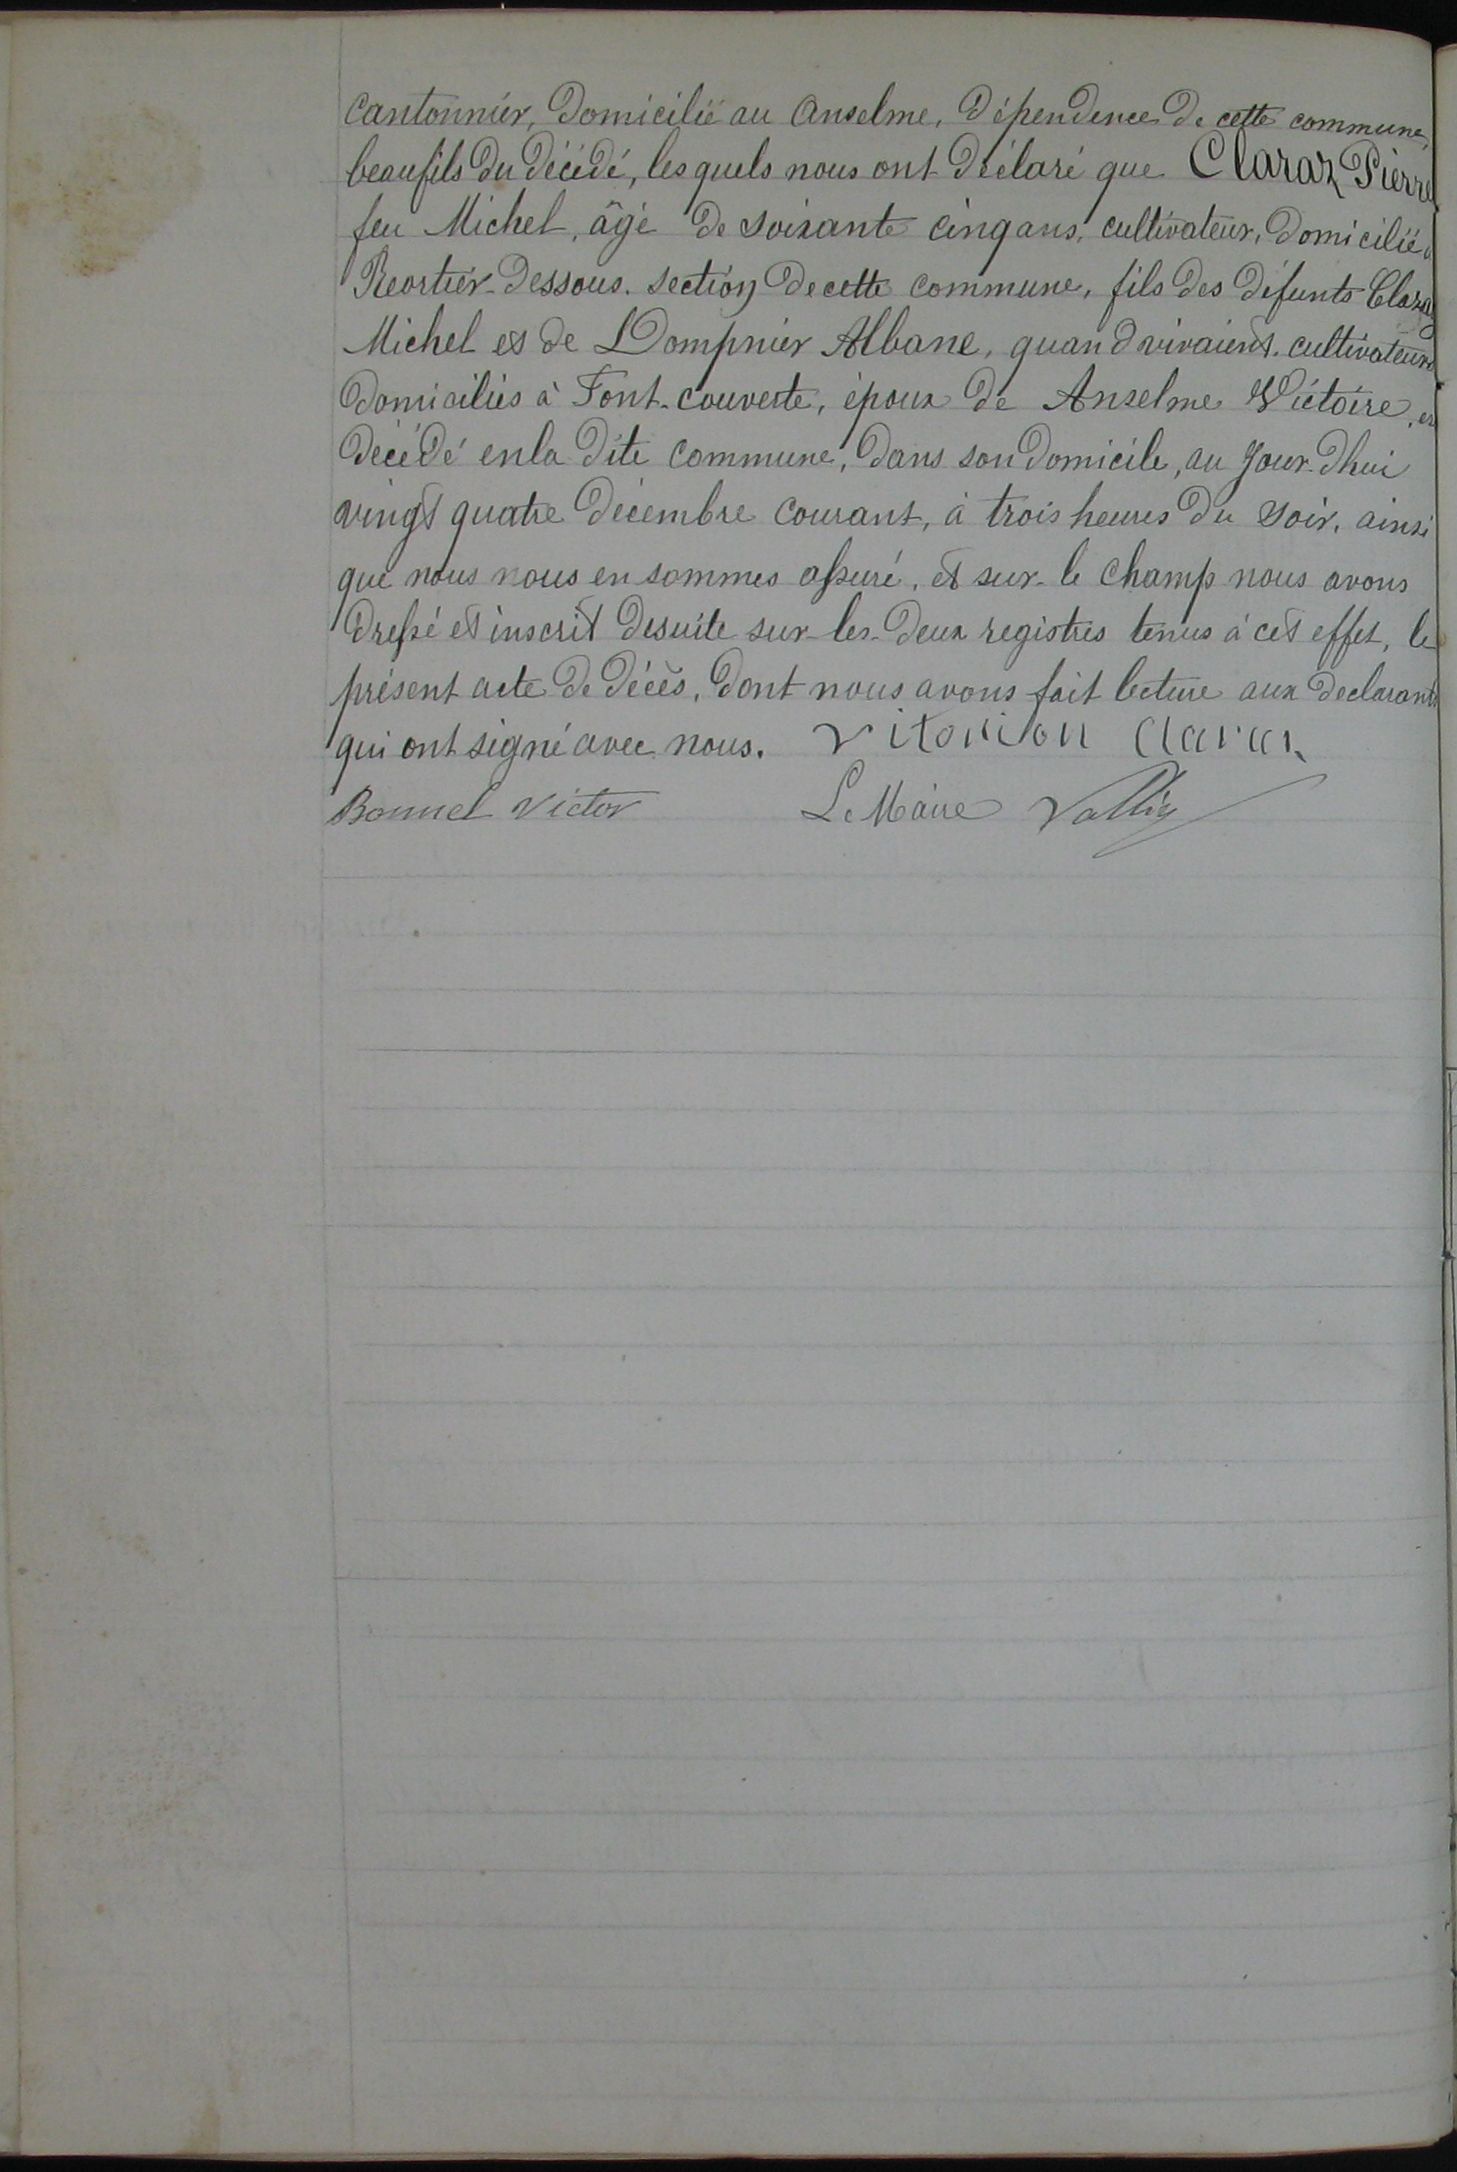 Cantonnier, Domicilié au Anselme, Dépendence de cette commune,
beaufils du décédé, les quels nous ont déclaré que Claraz Pierre
feu Michel, âgé de soixante cinq ans, cultivateur, domicilié à
Reortier-Dessous. section de cette commune, fils des défunts Claraz
Michel et de Dompnier Albane, quand vivaient cultivateurs
Domiciliés à Font-couverte, époux de Anselme Victoire, est
décédé en la dite commune, dans son domicile, au Jour-d'hui
vingt quatre décembre courant, à trois heures du soir, ainsi
que nous nous en sommes assuré, et sur-le champ nous avons
dressé et inscrit desuite sur-les-deux registres tenus à cet effet, le
présent acte de décès, dont nous avons fait lecture aux declarants
qui ont signé avec nous. Claraz
Bonnel Victor Le Maire